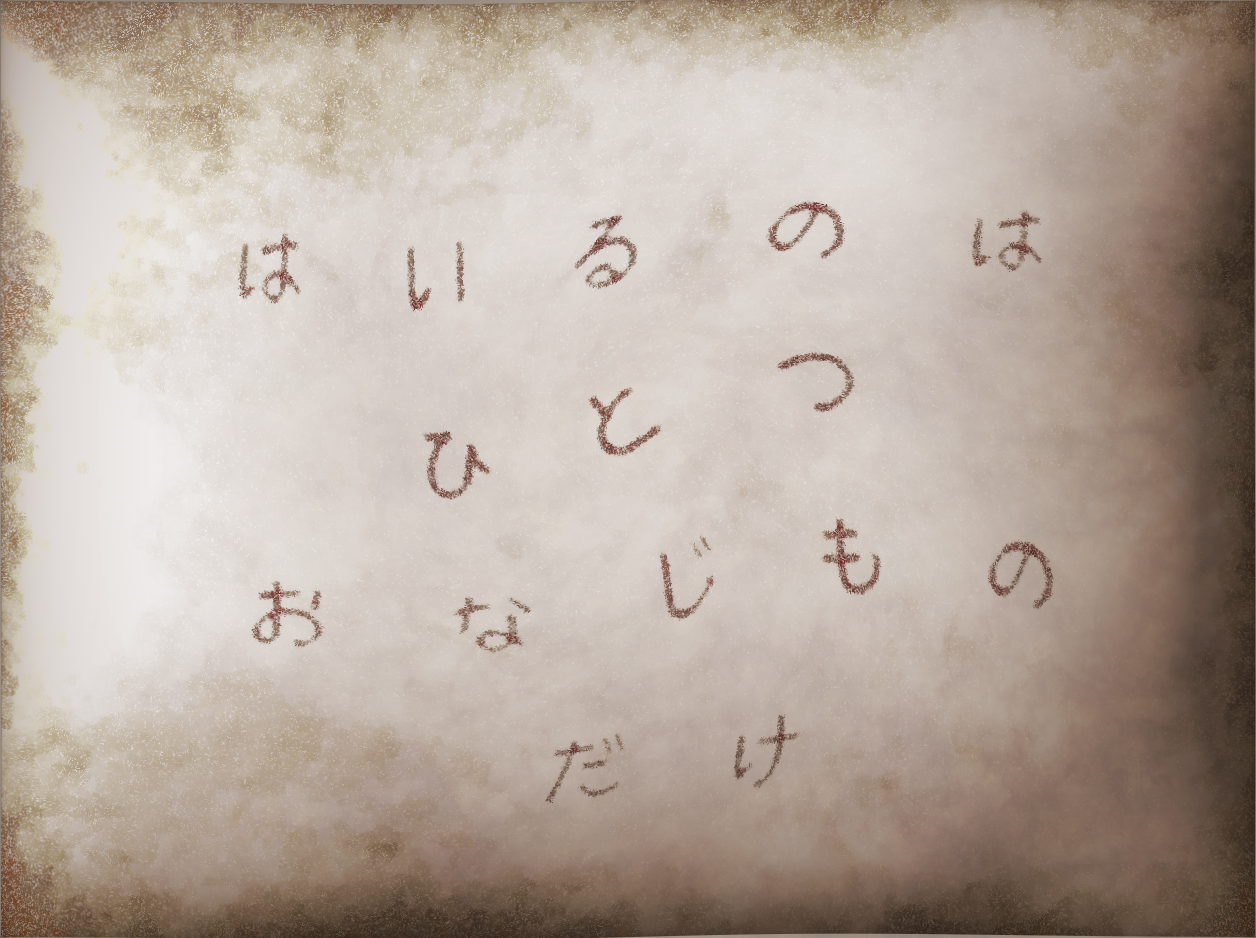 はいるのは
ひとつ
おなじもの
だけ